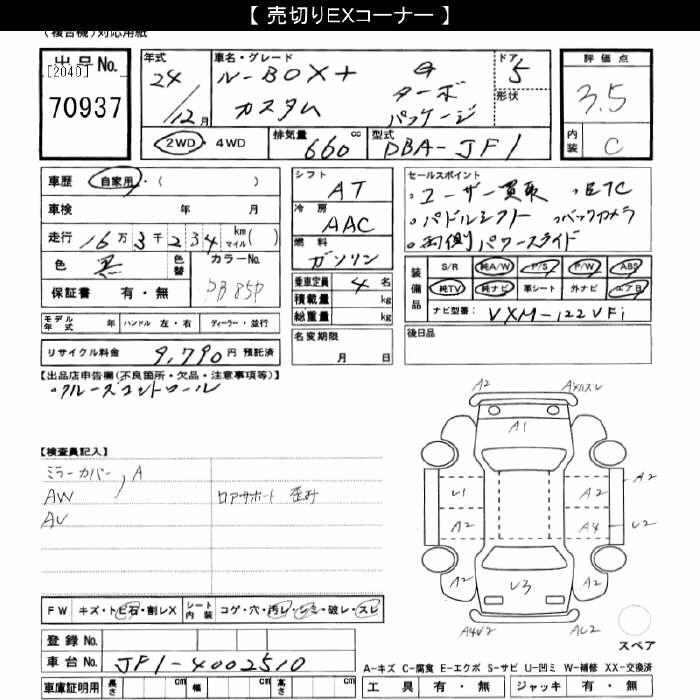 【 売切りEXコーナー 】
(複合機)対応用紙
出品No.
[2040]
70937
年式
24
/12月
車名・グレード
N-BOX+ G
カスタム ターボ
パッケージ
ドア
5
形状
評価点
3.5
内装
C
2WD・4WD
排気量
660 cc
型式
DBA-JF1
車歴 自家用・( )
車検 年 月
走行 16万3千234 km マイル( )
色 黒
色替
カラーNo.
保証書 有・無
シフト
AT
冷房
AAC
燃料
ガソリン
乗車定員 4 名
積載量 kg
総重量 kg
名変期限
月 日
セールスポイント
・ユーザー買取 ・ETC
・パドルシフト ・バックカメラ
・両側パワースライド
装備品
S/R 純A/W P/S P/W ABS
純TV 純ナビ 革シート 外ナビ エアB
ナビ型番: VXM-122VFi
後日品
モデル年式 年 ハンドル 左・右 ディーラー・並行
リサイクル料金 9,790 円 預託済
【出品店申告欄(不良箇所・欠品・注意事項等)】
・クルーズコントロール
【検査員記入】
ミラーカバー A
AW
AU
ロアサポート
FW キズ・トビ石・割レX シート内装 コゲ・穴・汚レ・シミ・破レ・スレ
登録No.
車台No. JF1-4002510
車庫証明用 長さ cm 幅 cm 高さ cm
A2
A1
U1
A2
A2
A2
A2
A4
U2
A2
U3
A2
A4U2
AU2
スペア
A-キズ C-腐食 E-エクボ S-サビ U-凹ミ W-補修 XX-交換済
工具 有・無 ジャッキ 有・無